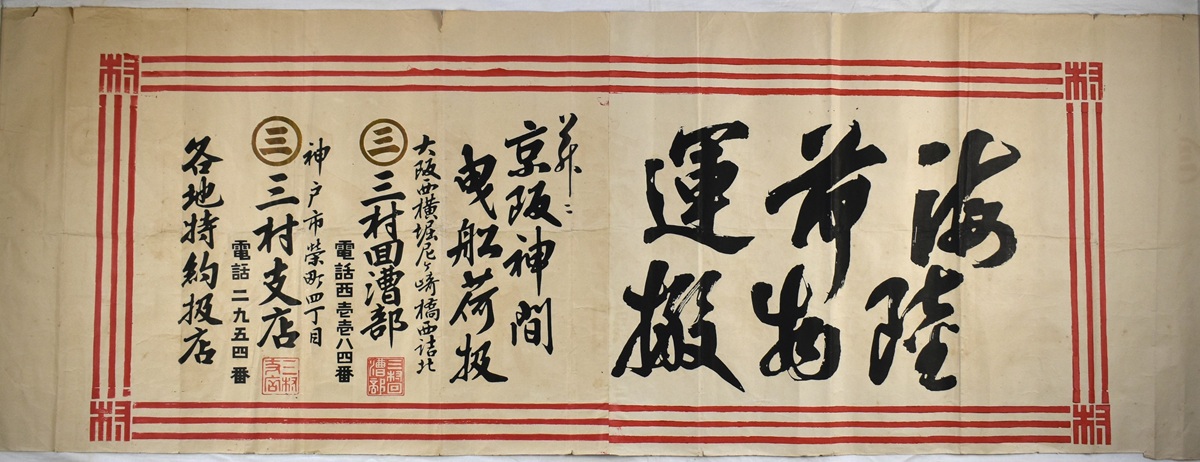 海陸
荷物
運搬
並ニ
京阪神間
曳船荷扱
大阪西横堀尼ヶ崎橋西詰北
三
三村回漕部
電話西壱壱八四番
三村回漕部
神戸市榮町四丁目
三
三村支店
電話二九五四番
三村支店
各地特約扱店
村
村
村
村